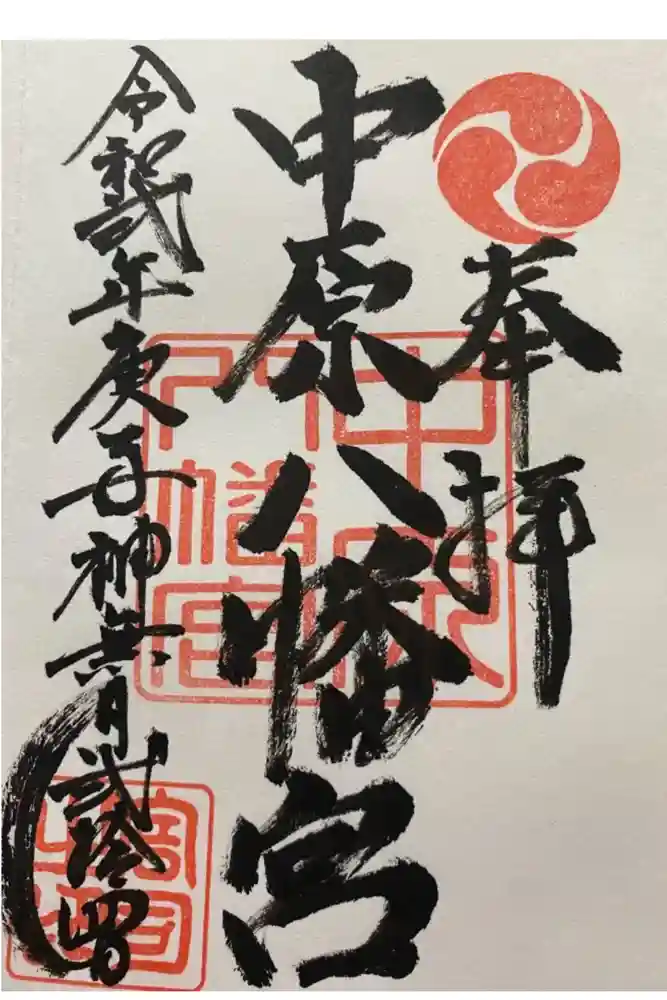 奉拝
中原八幡宮
令和弐年庚子神無月弐拾四日
中原八幡宮
宮司